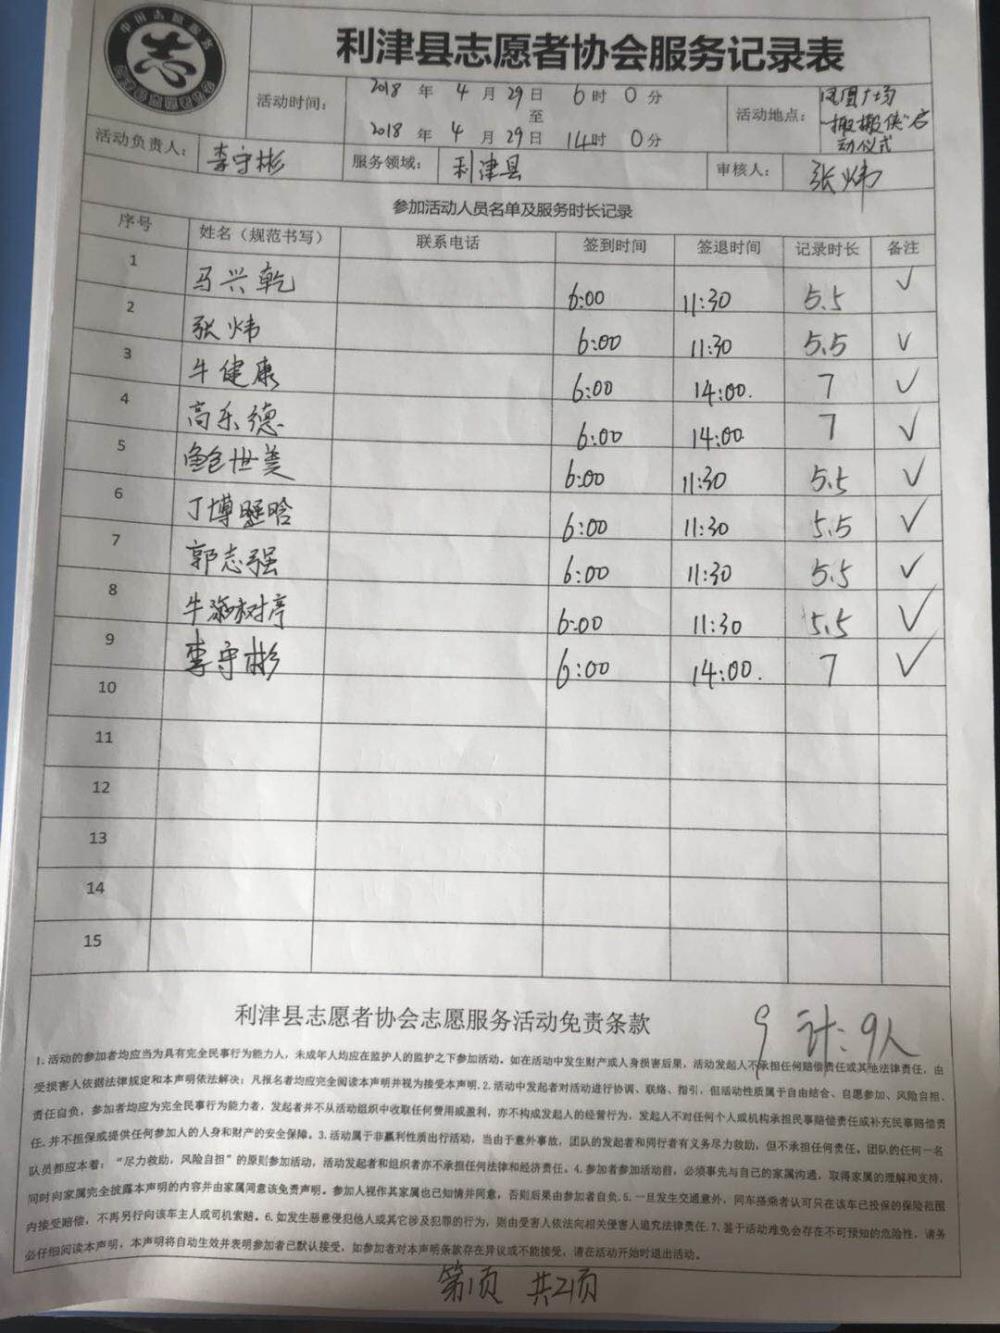 中国志愿服务
志
利津县志愿者协会服务记录表
活动时间： 2018 年 4 月 29 日 6 时 0 分
至
2018 年 4 月 29 日 14 时 0 分
活动地点： 凤凰广场
"搬搬侠"启
动仪式
活动负责人： 李守彬 服务领域： 利津县 审核人： 张炜
参加活动人员名单及服务时长记录
序号 姓名（规范书写） 联系电话 签到时间 签退时间 记录时长 备注
1 马兴乾 6:00 11:30 5.5 ✓
2 张炜 6:00 11:30 5.5 ✓
3 牛健康 6:00 14:00. 7 ✓
4 高乐德 6:00 14:00 7 ✓
5 世美 6:00 11:30 5.5 ✓
6 丁博晗 6:00 11:30 5.5 ✓
7 郭志强 6:00 11:30 5.5 ✓
8 牛树亭 6:00 11:30 5.5 ✓
9 李守彬 6:00 14:00. 7 ✓
10
11
12
13
14
15
利津县志愿者协会志愿服务活动免责条款
计：9人
1.活动的参加者均应当为具有完全民事行为能力人，未成年人均应在监护人的监护之下参加活动。如在活动中发生财产或人身损害后果，活动发起人不承担任何赔偿责任或其他法律责任，由
受损害人依据法律规定和本声明依法解决；凡报名者均应完全阅读本声明并视为接受本声明.2.活动中发起者对活动进行协调、联络、指引，但活动性质属于自由结合、自愿参加、风险自担、
责任自负，参加者均应为完全民事行为能力者，发起者并不从活动组织中收取任何费用或盈利，亦不构成发起人的经营行为，发起人不对任何个人或机构承担民事赔偿责任或补充民事赔偿责
任.并不担保或提供任何参加人的人身和财产的安全保障。3.活动属于非赢利性质出行活动，当由于意外事故，团队的发起者和同行者有义务尽力救助，但不承担任何责任。团队的任何一名
队员都应本着："尽力救助，风险自担"的原则参加活动，活动发起者和组织者亦不承担任何法律和经济责任。4.参加者参加活动前，必须事先与自己的家属沟通，取得家属的理解和支持，
同时向家属完全披露本声明的内容并由家属同意该免责声明。参加人视作其家属也已知情并同意，否则后果由参加者自负.5.一旦发生交通意外，同车搭乘者认可只在该车已投保的保险范围
内接受赔偿，不再另行向该车主人或司机索赔。6.如发生恶意侵犯他人或其它涉及犯罪的行为，则由受害人依法向相关侵害人追究法律责任.7.鉴于活动难免会存在不可预知的危险性，请务
必仔细阅读本声明，本声明将自动生效并表明参加者已默认接受，如参加者对本声明条款存在异议或不能接受，请在活动开始时退出活动。
第1页 共21页